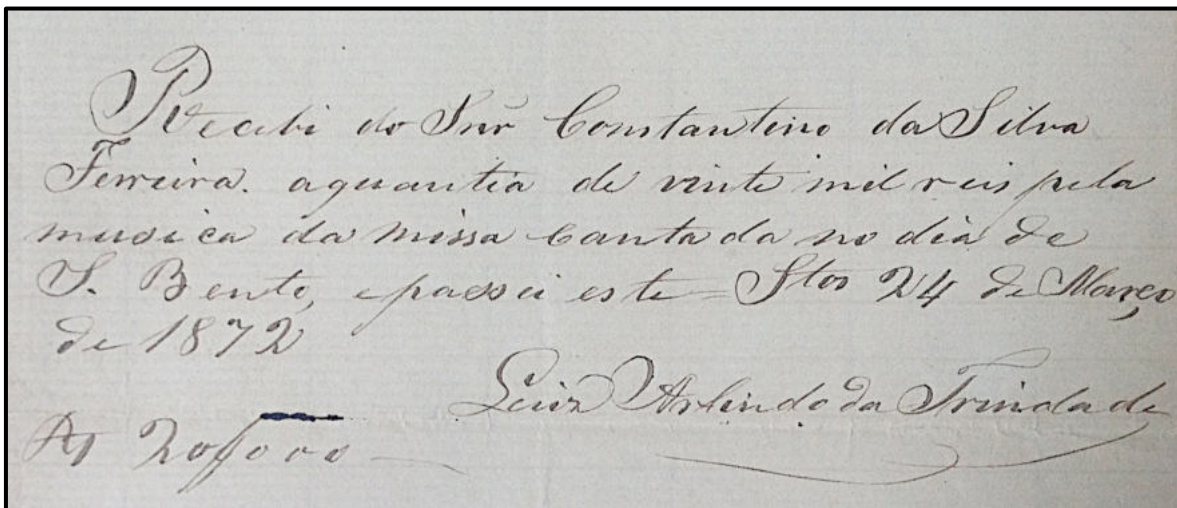 Recebi do Snr̃ Constantino da Silva
Ferreira. aquantia de vinte mil reis pela
musica da missa Cantada no dia de
S. Bento, e passei este = Stos 24 de Março
de 1872
Luiz Arlindo da Trindade
Rs 20$000